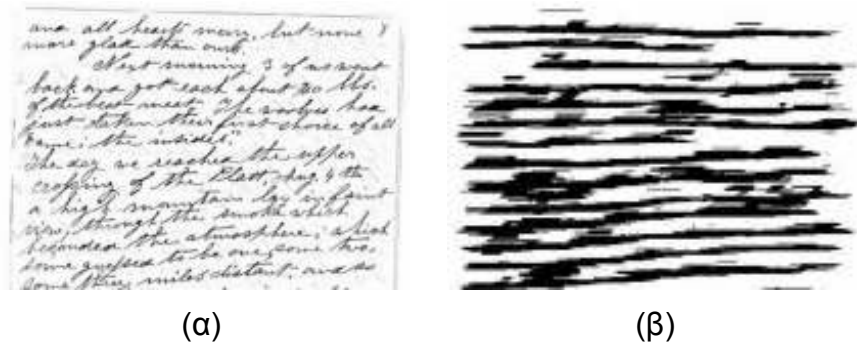 and all hearts            but none
more glad than ours.
Next morning 3 of us went
back and got each about 20 lbs.
of the best meat. The wolves had
just taken their first choice of all
came, the insides."
The day we reached the upper
crossing of the Platt, Aug 4 th
a high mountain lay in faint
view, through the smoke which
the atmosphere; which
some guessed to be one, some two,
some three miles distant; and so
(α) (β)